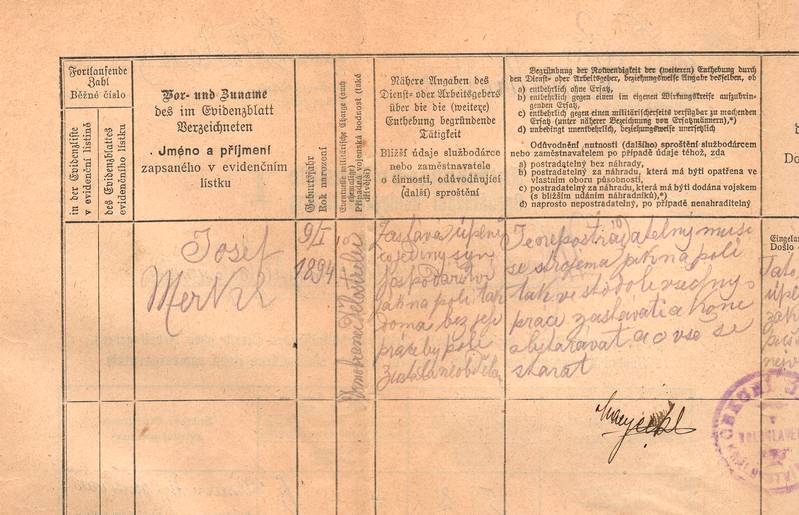 Fortlaufende
Zahl
Běžné číslo
in der Evidenzliste
v evidenční listině
des Evidenzblattes
evidenčního lístku
Vor- und Zuname
des im Evidenzblatt
Verzeichneten
Jméno a příjmení
zapsaného v evidenčním
lístku
Geburtsjahr
Rok narození
Eventuelle militärische Charge (auch
ehemalige)
Případná vojenská hodnost (také
dřívější)
Nähere Angaben des
Dienst- oder Arbeitsgebers
über die die (weitere)
Enthebung begründende
Tätigkeit
Bližší údaje služodárce
neb zaměstnavatele
o činnosti, odůvodňující
(další) sproštění
Begründung der Notwendigkeit der (weiteren) Enthebung durch
den Dienst- oder Arbeitsgeber, beziehungsweise Angabe desselben, ob
a) entbehrlich ohne Ersatz,
b) entbehrlich gegen einen im eigenen Wirkungskreise aufzubrin-
genden Ersatz,
c) entbehrlich gegen einen militärischerseits verfügbar zu machenden
Ersatz (unter näherer Bezeichnung von Ersatzmännern),*)
d) unbedingt unentbehrlich, beziehungsweise unersetzlich
Odůvodnění nutnosti (dalšího) sproštění služodárcem
nebo zaměstnavatelem po případě údaje téhož, zda
a) postradatelný bez náhrady,
b) postradatelný za náhradu, která má býti opatřena ve
vlastním oboru působnosti,
c) postradatelný za náhradu, která má býti dodána vojskem
(s bližším udáním náhradníků),*)
d) naprosto nepostradatelný, po případě nenahraditelný
Do
Josef
Merkl
9/I
1894
Zastává úplně
co jediný syn
hospodářství
jak na poli tak
doma bez jeho
práce by pole
Je nepostradatelný musí
se strojema jak na poli
tak ve stodole všechny
práce zastávati a koně
obstarávat a o vše se
starat
Eingelan
Došlo